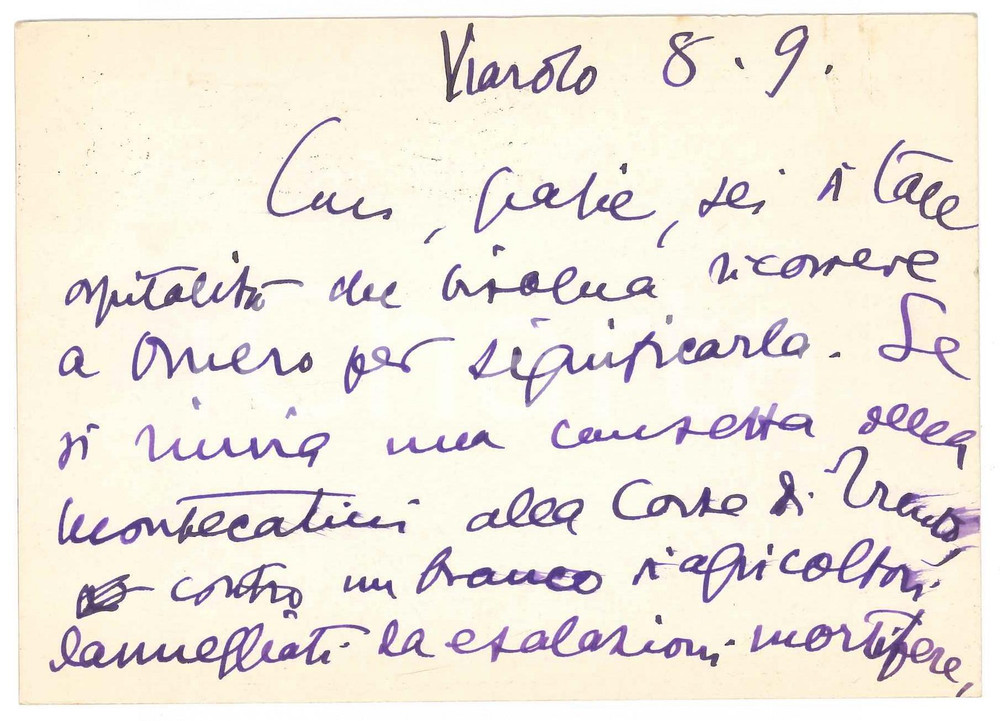 Viarolo 8.9.
Caro, grazie, sei di tale
ospitalità che bisogna ricorrere
a Omero per significarla. Se
si rinvia una causetta della
Montecatini alla Corte di Trento,
contro un branco di agricoltori
danneggiati da esalazioni mortifere,